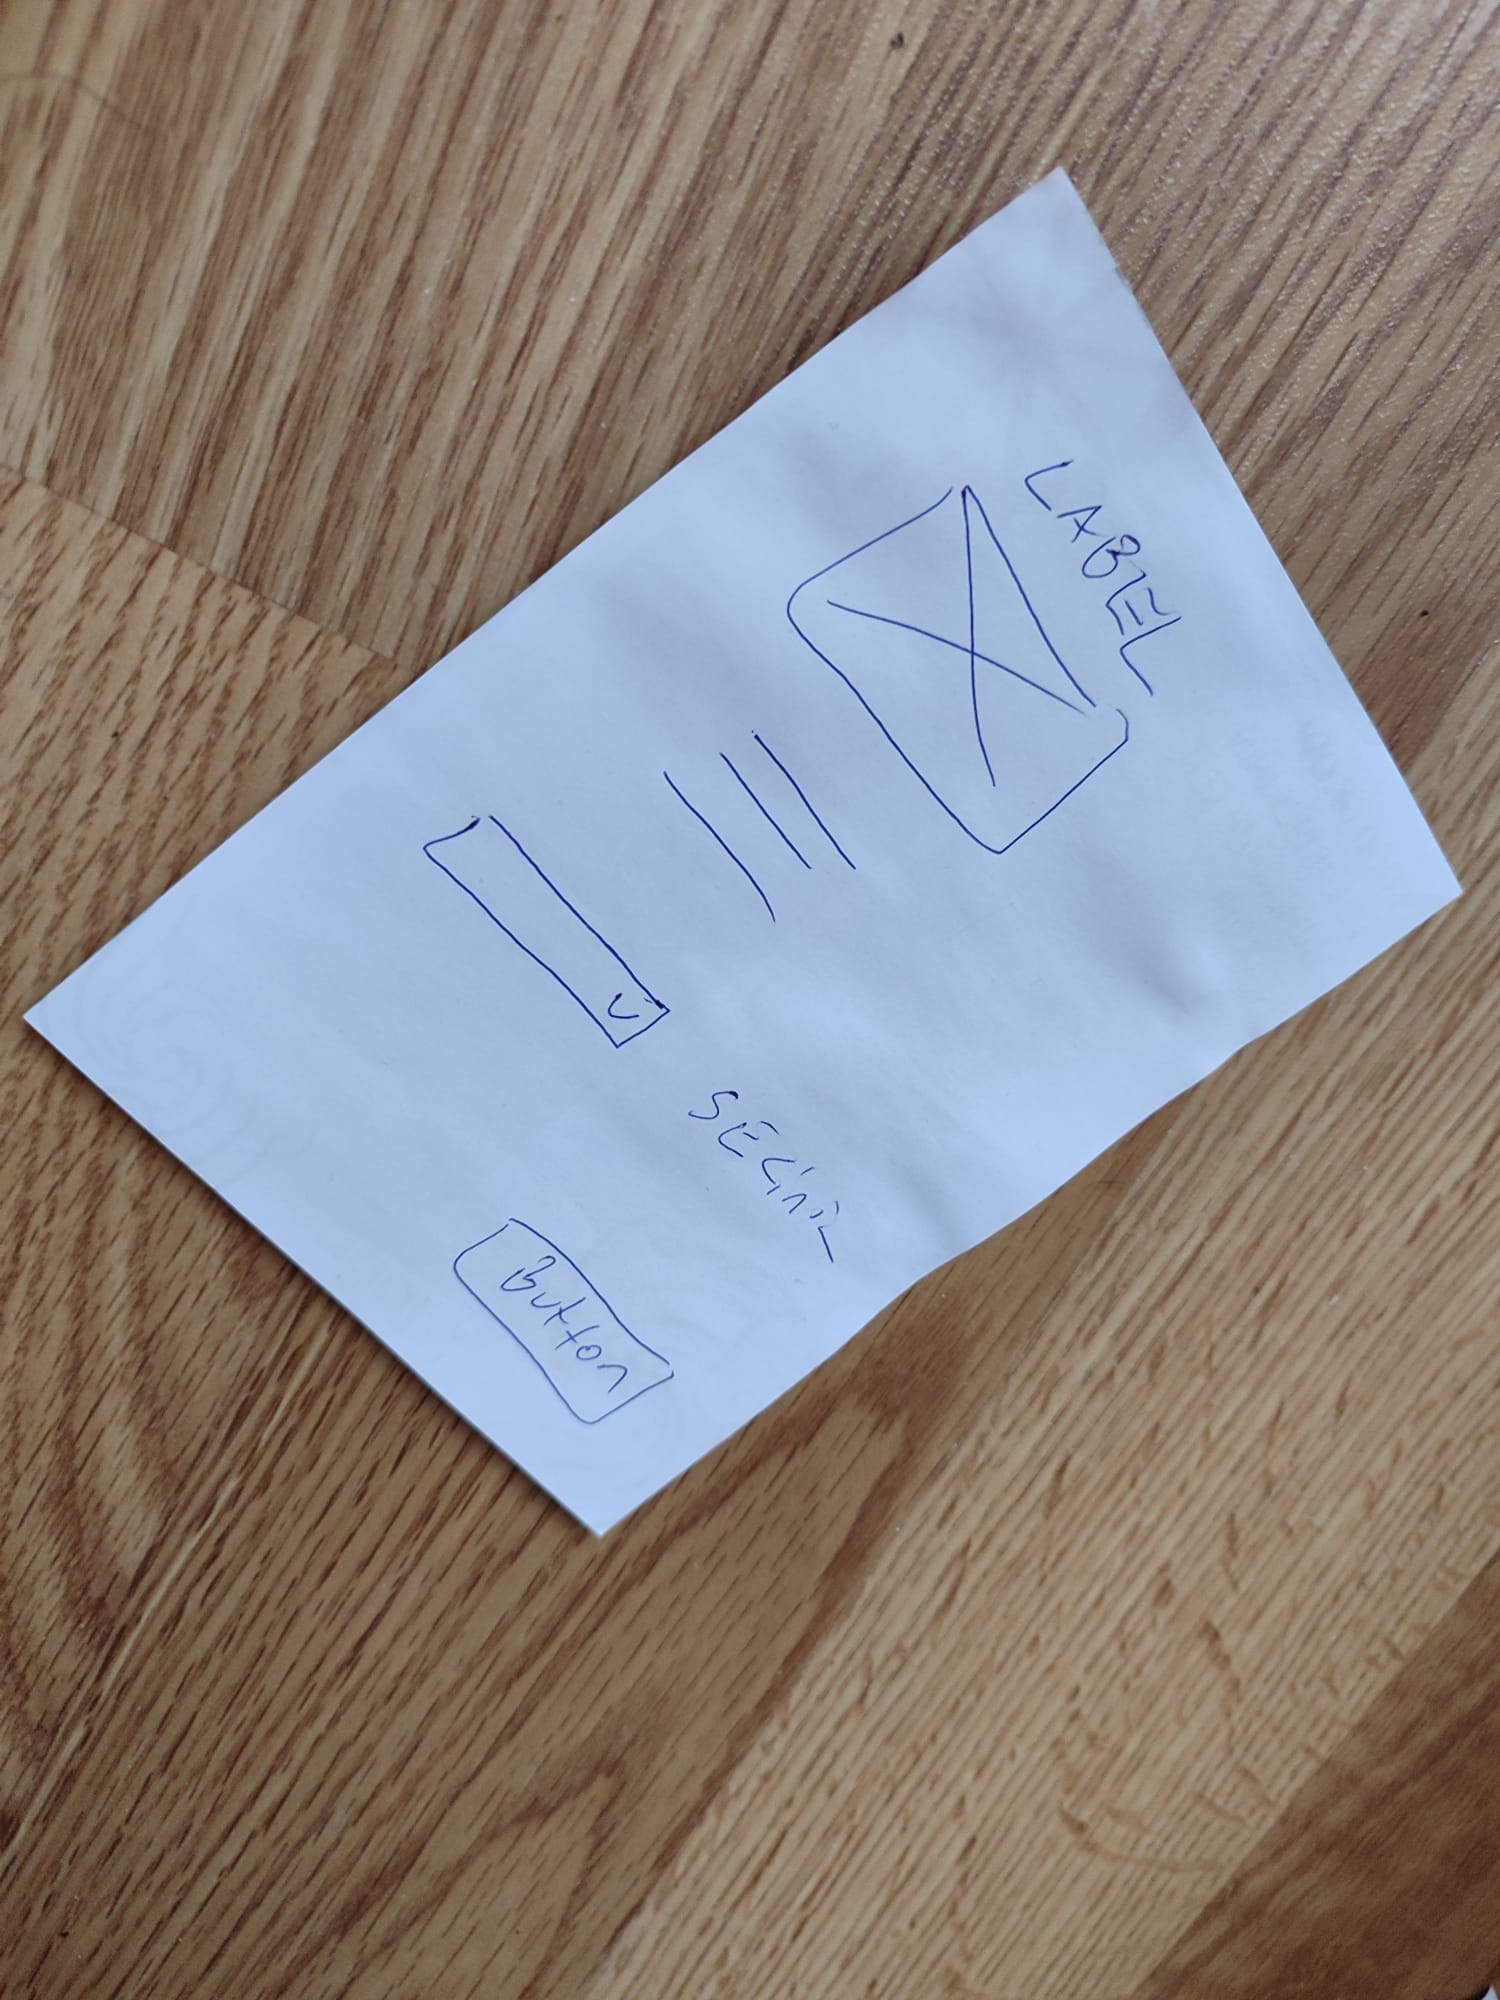 LABEL
SECiniz
Button